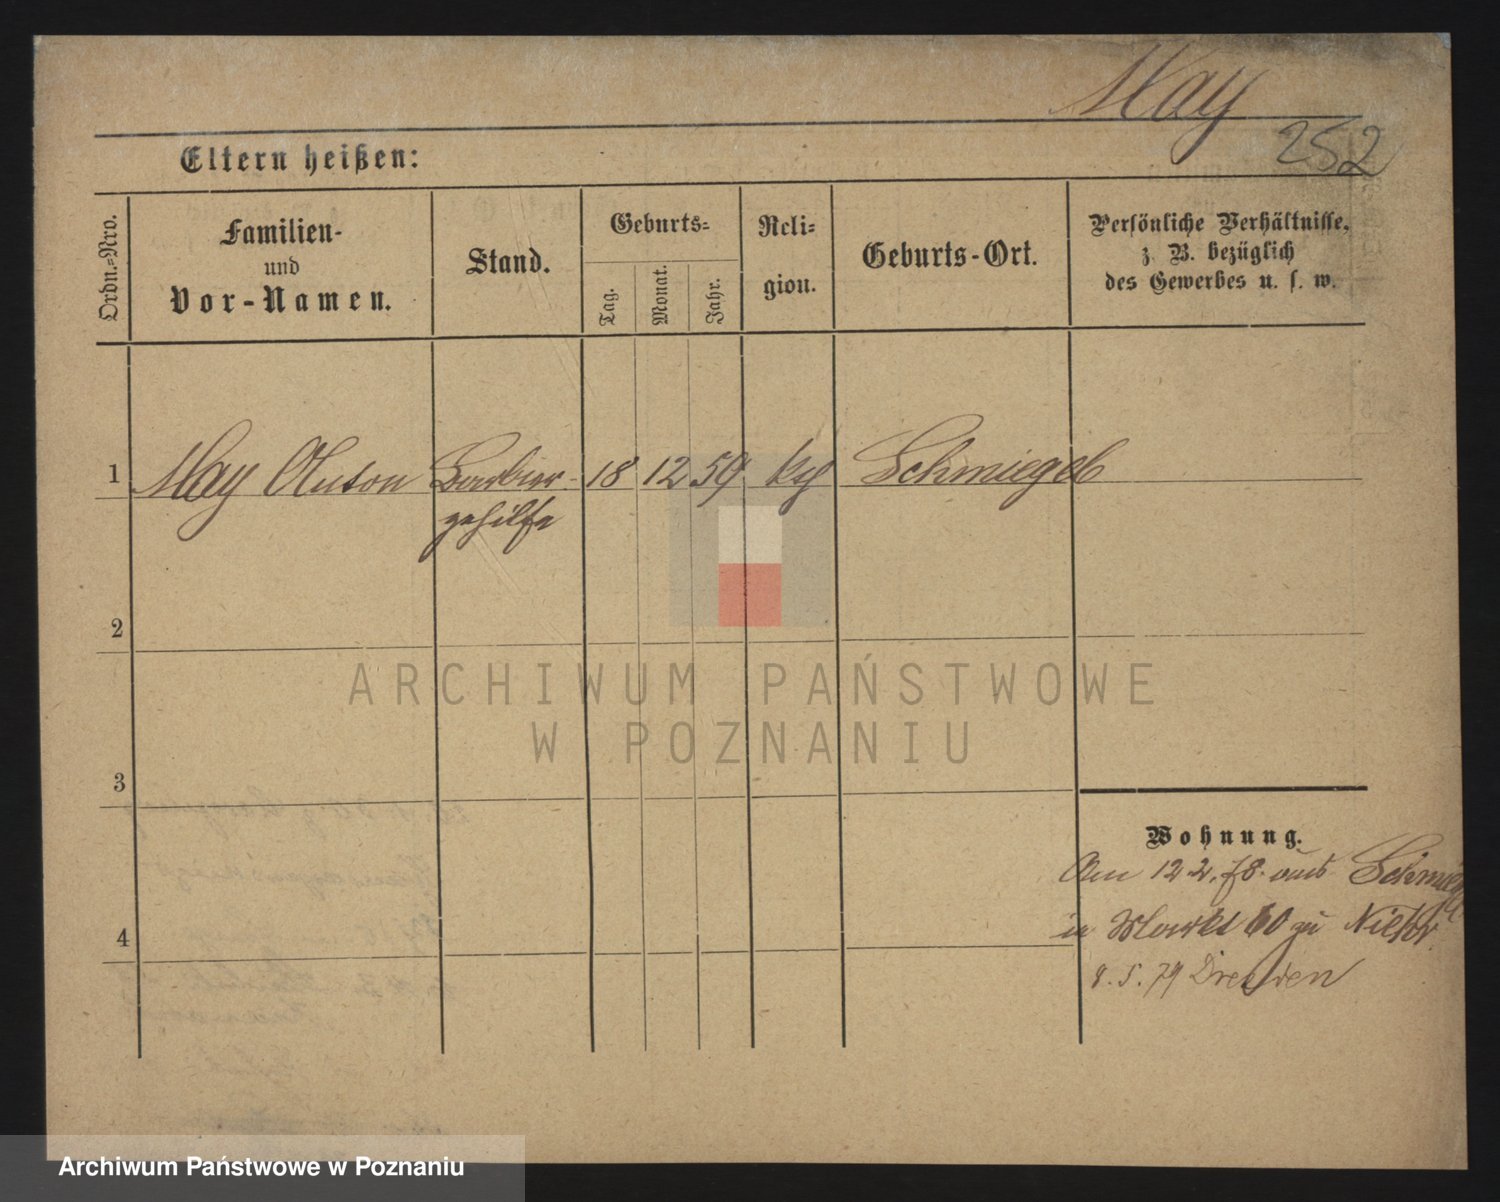 May
252
Eltern heißen:
Ordn.-Nro.
Familien-
und
Vor-Namen.
Stand.
Geburts-
Tag.
Monat.
Jahr.
Reli-
gion.
Geburts-Ort.
Persönliche Verhältnisse,
z. B. bezüglich
des Gewerbes u. s. w.
1 May Anton Barbier- 18 12 59 kth Schmiegel
gehilfe
2
ARCHIWUM PAŃSTWOWE
W POZNANIU
3
Wohnung.
Am 12 2. 78. aus Schmiegel
in Markt 60 zu
4
8. 5. 79 Dresden
Archiwum Państwowe w Poznaniu